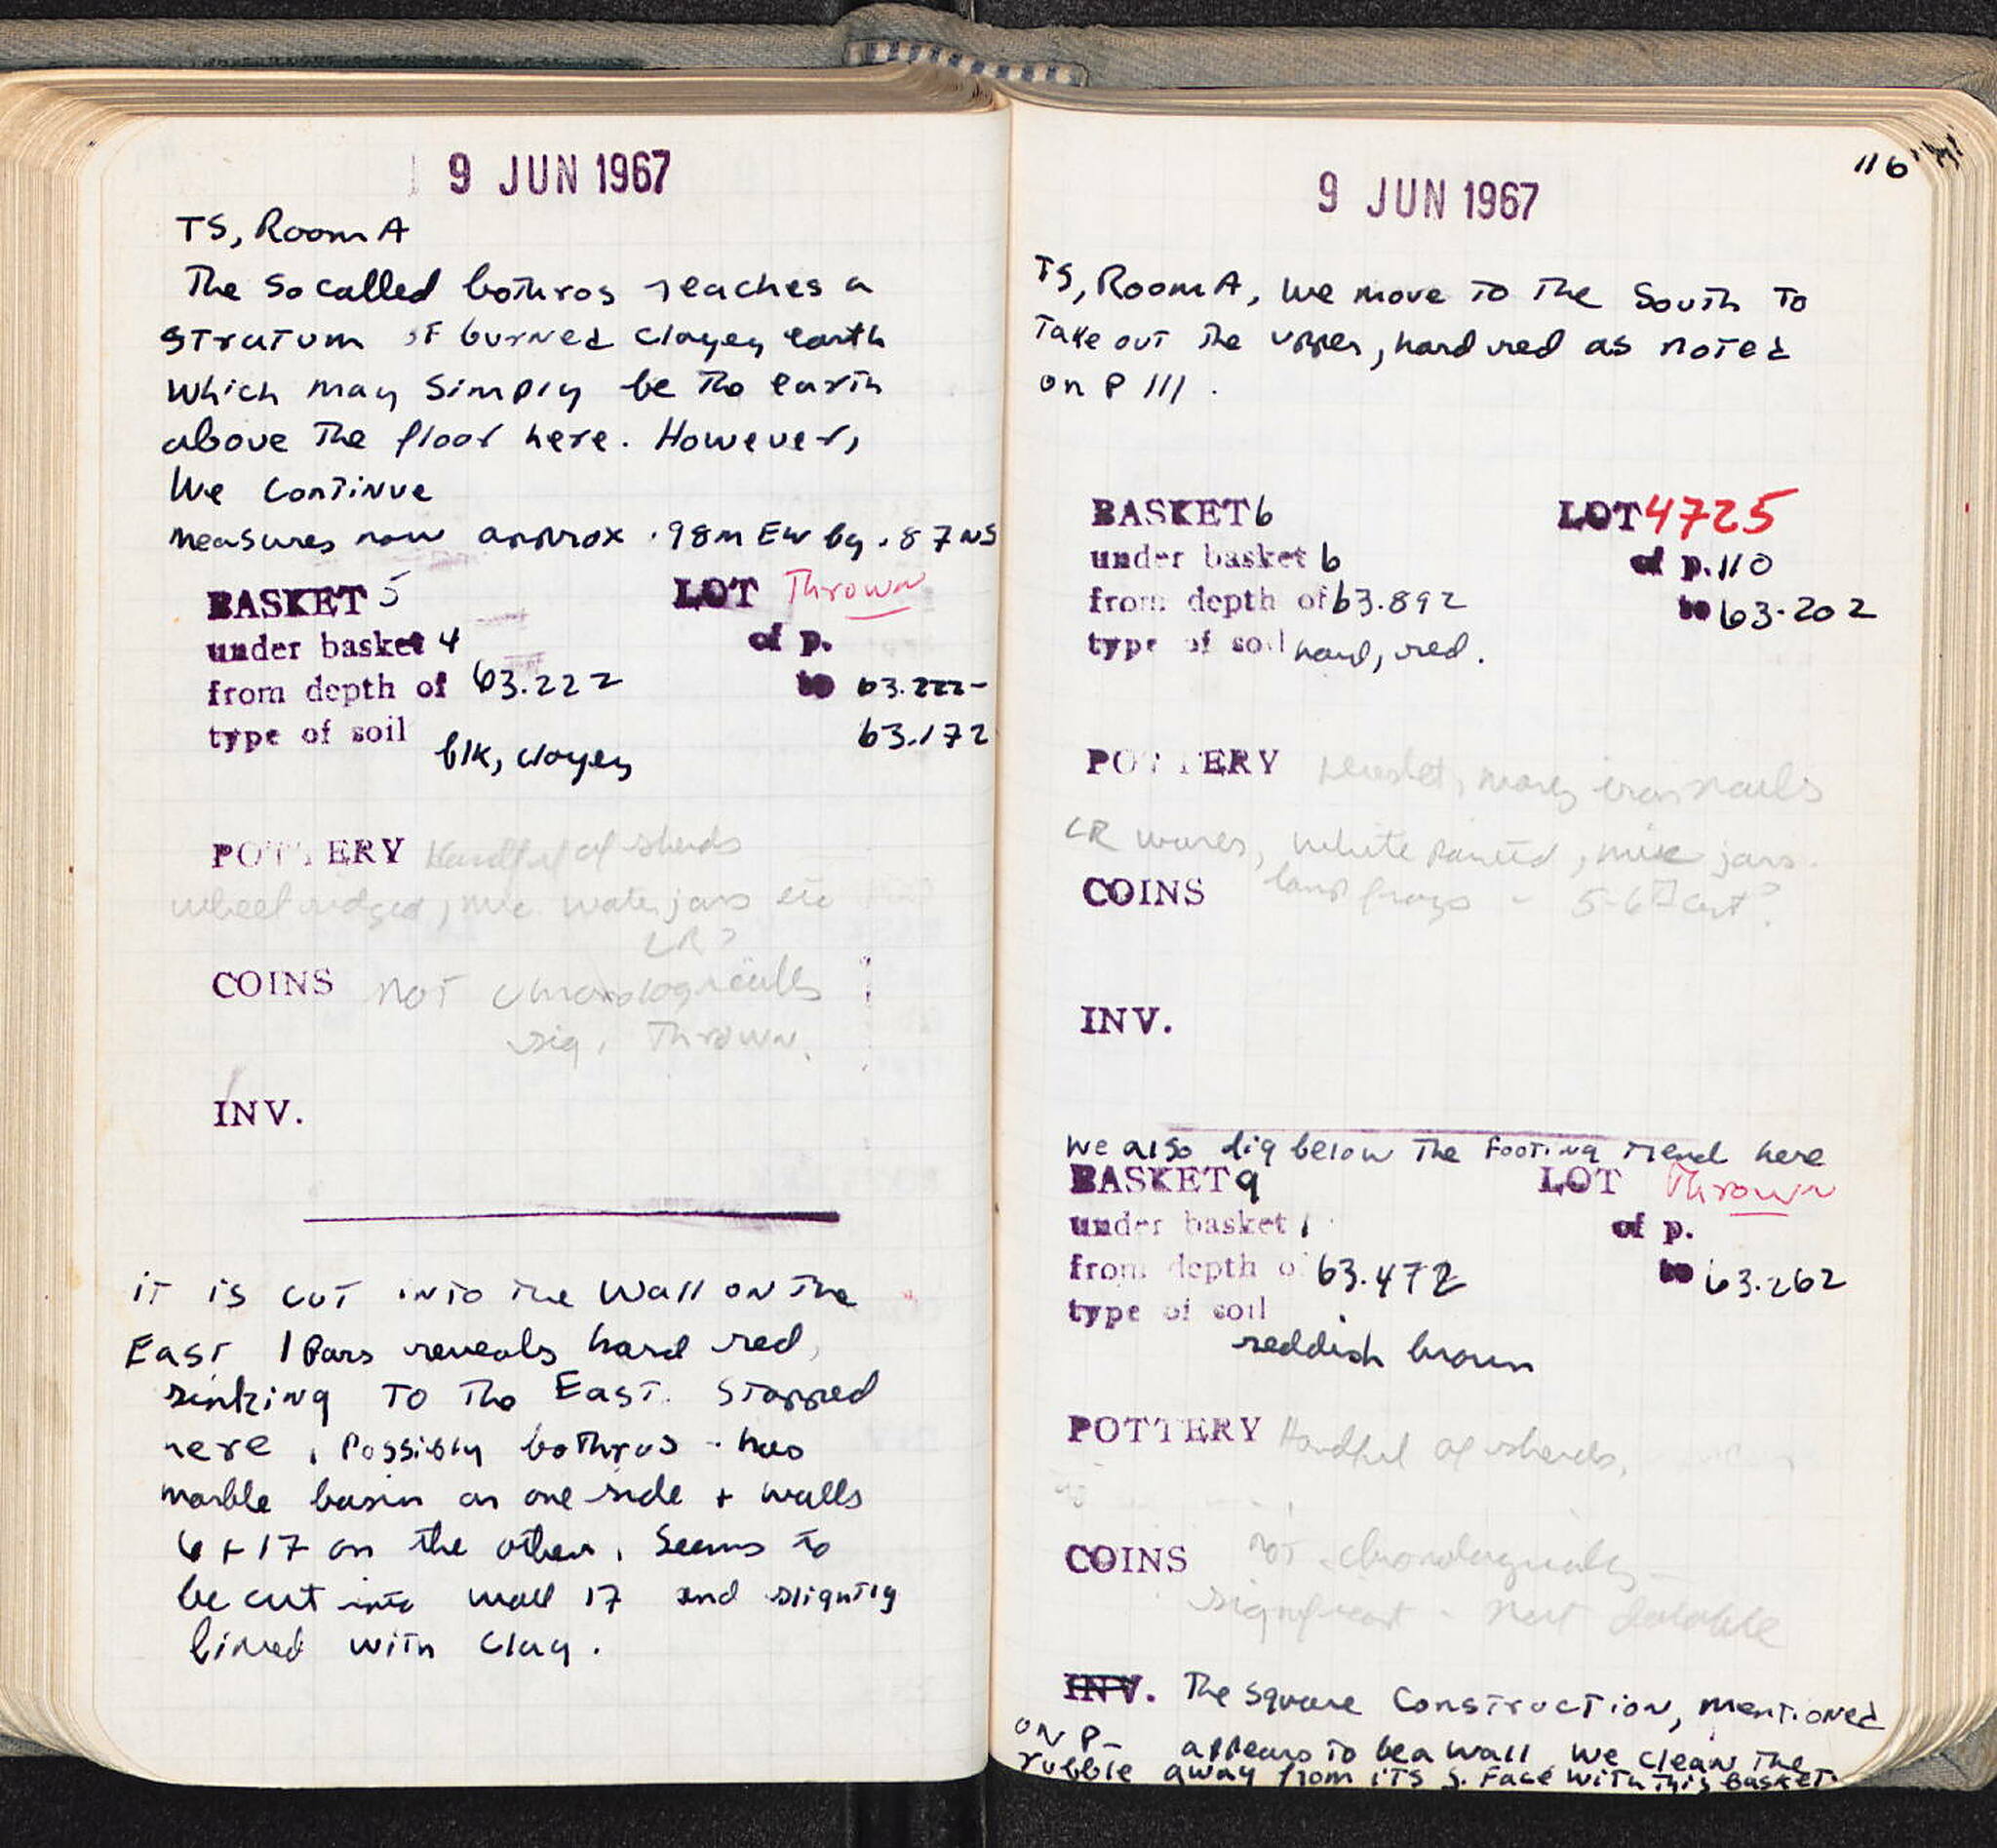 9 JUN 1967
TS, Room A
The so called bothros reaches a
stratum of burned clayey earth
which may simply be the earth
above the floor here. However,
we continue
measures now approx .98m EW by .87 NS
BASKET 5 LOT Thrown
under basket 4 of p.
from depth of 63.222 to 63.222-
63.172
type of soil blk, clayey
POTTERY Handful of sherds
wheel ridged, mic. water jars etc
LR?
COINS not chronologically
sig. Thrown.
INV.
it is cut into the wall on the
East 1 Pars reveals hard red,
sinking to the East. Stopped
here. Possibly bothros - has
marble basin on one side + walls
6 + 17 on the other. Seems to
be cut into wall 17 and slightly
lined with clay.
116
9 JUN 1967
TS, Room A, we move to the South to
take out the upper, hard red as noted
on P 111.
BASKET 6 LOT 4725
under basket 6 of p. 110
from depth of 63.892 to 63.202
type of soil hard, red.
POTTERY many iron nails
LR wares, white painted, mic jars.
lamp frags - 5-6th cent?
COINS
INV.
We also dig below the footing trench here
BASKET 9 LOT Thrown
under basket 1 of p.
from depth of 63.472 to 63.262
type of soil
reddish brown
POTTERY Handful of sherds,
COINS not chronologically
significant - not datable
INV. The square construction, mentioned
on P- appears to be a wall. We clean the
rubble away from its S. face with this basket.